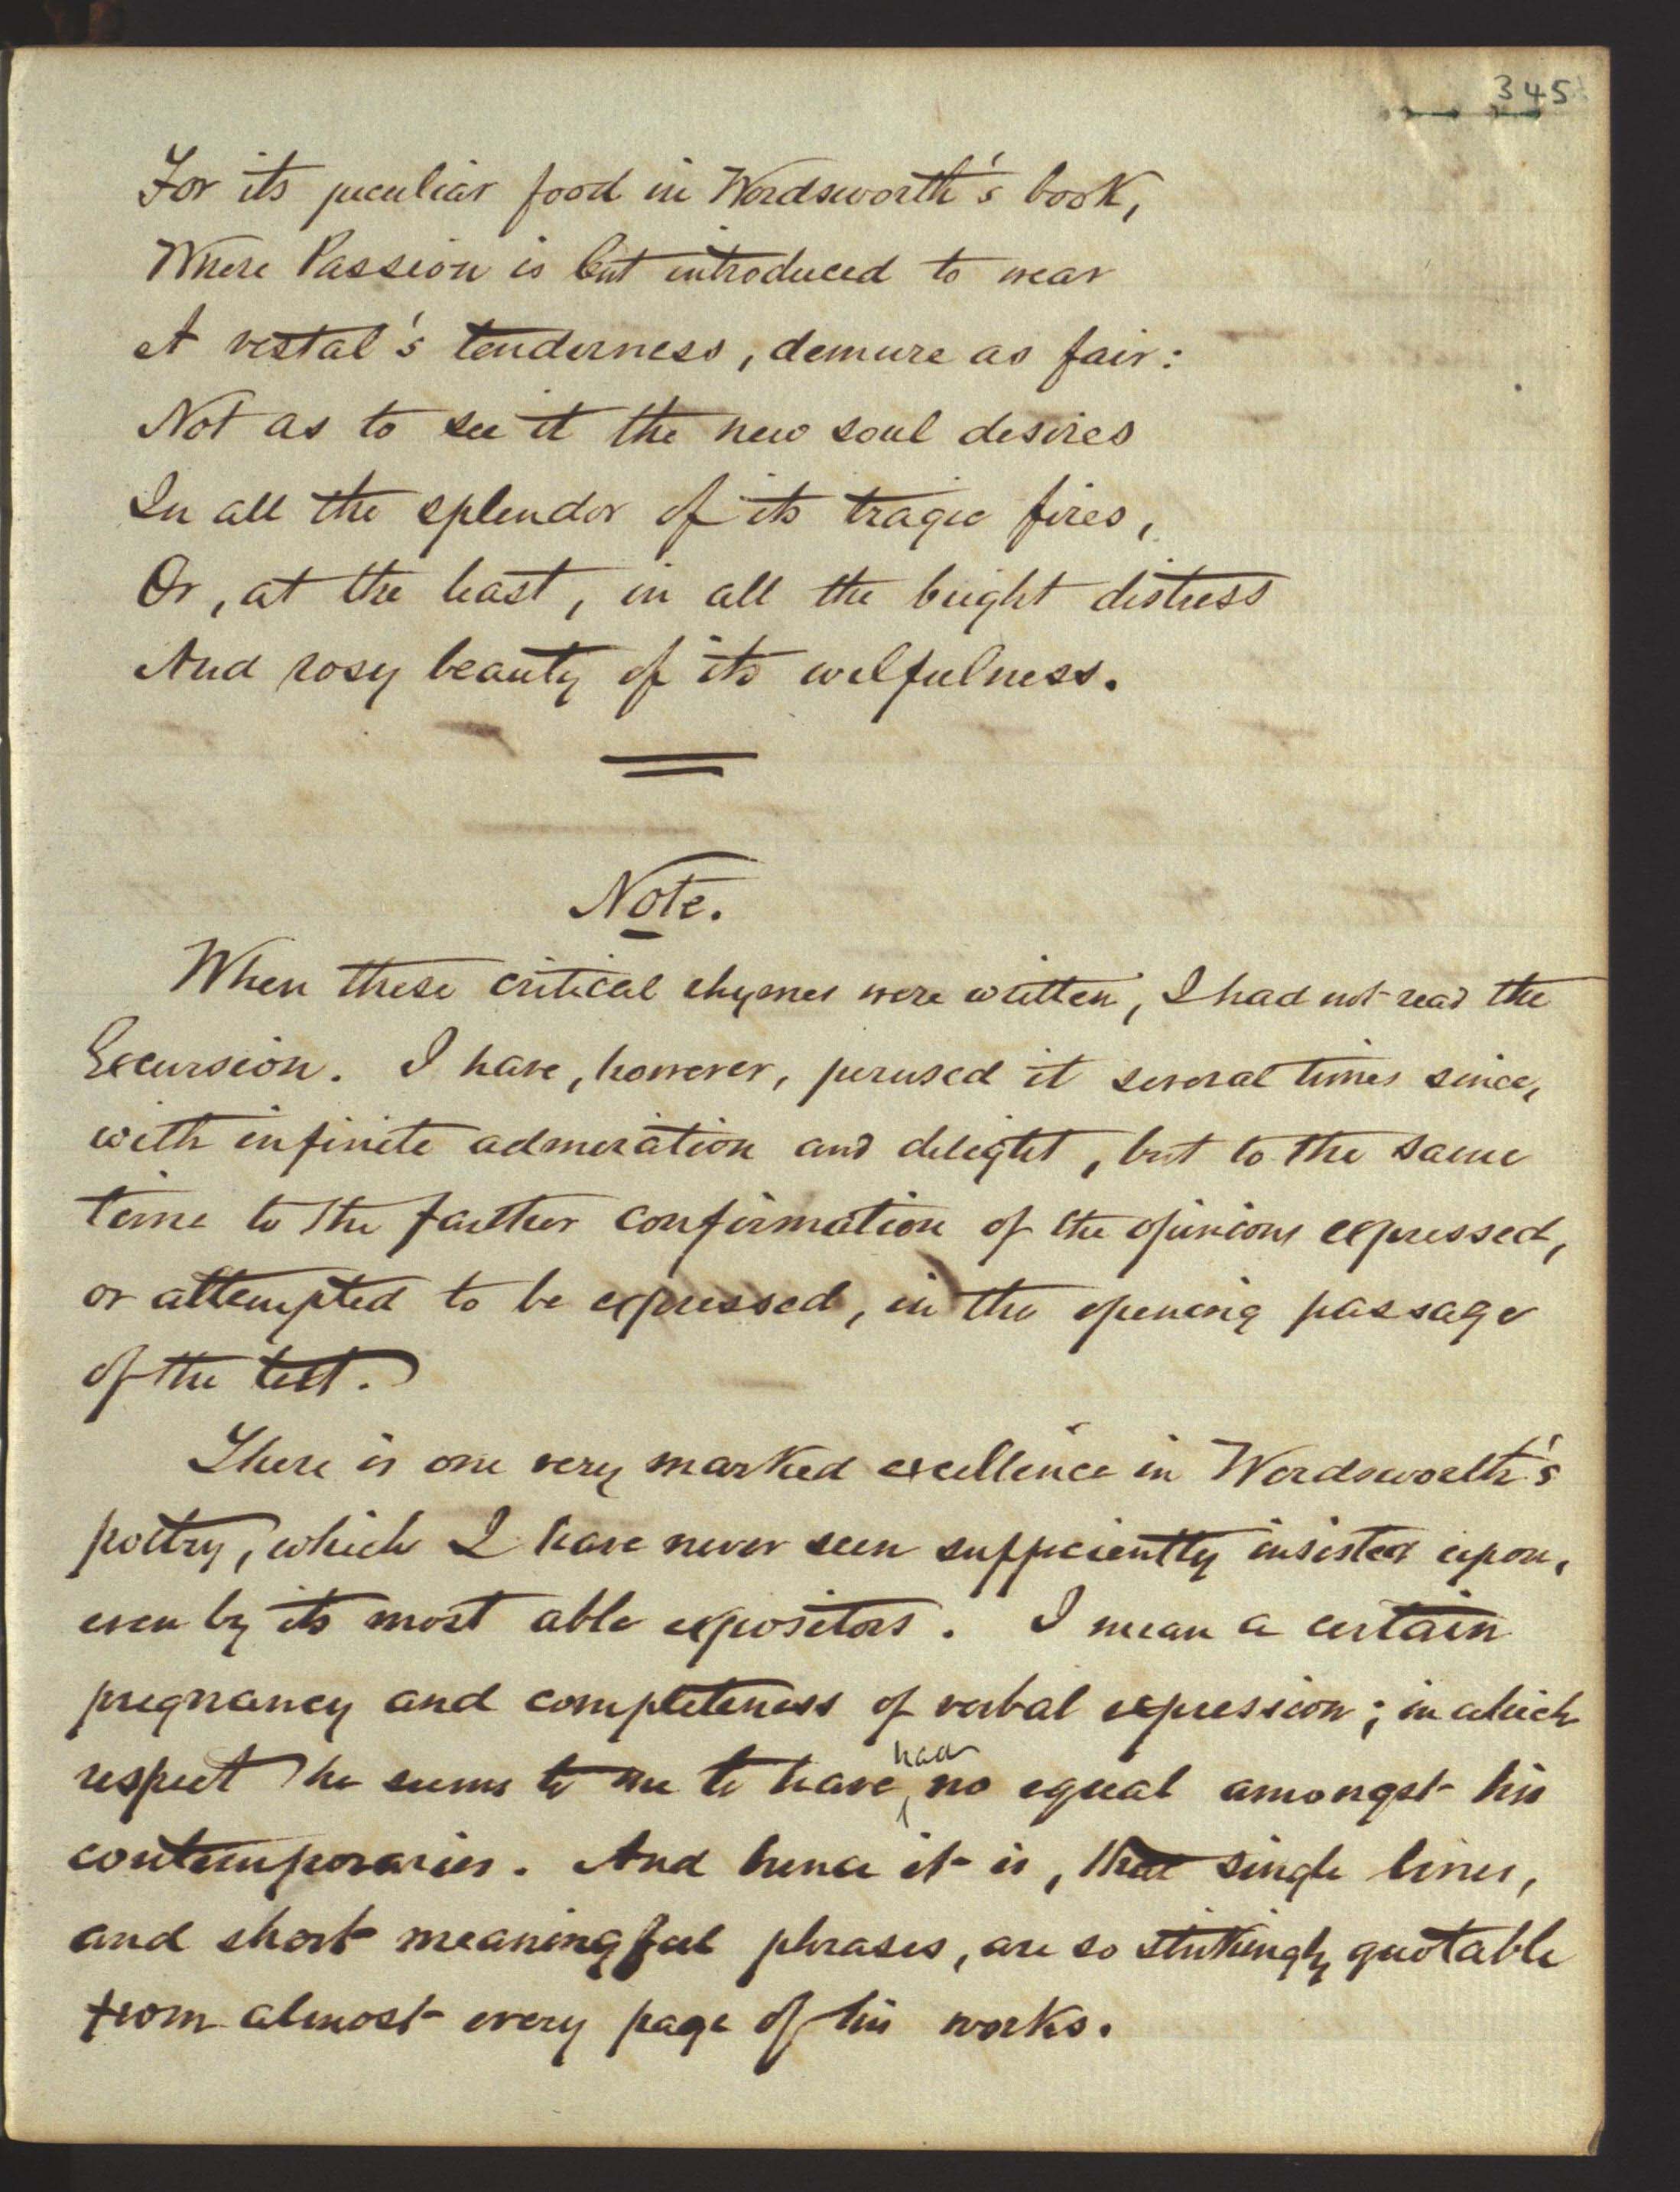 345
For its peculiar food in Wordsworth's book,
Where Passion is but introduced to wear
A vestal's tenderness, demure as fair:
Not as to see it the new soul desires
In all the splendor of its tragic fires,
Or, at the least, in all the bright distress
And rosy beauty of its wilfulness.
Note.
When these critical rhymes were written, I had not read the
Excursion. I have, however, perused it several times since,
with infinite admiration and delight, but to the same
time to the farther confirmation of the opinions expressed,
or attempted to be expressed, in the opening passage
of the text.
There is one very marked excellence in Wordsworth's
poetry, which I have never seen sufficiently insisted upon,
even by its most able expositors. I mean a certain
pregnancy and completeness of verbal expression; in which
respect he seems to me to have had no equal amongst his
contemporaries. And hence it is, that single lines,
and short meaningful phrases, are so strikingly quotable
from almost every page of his works.